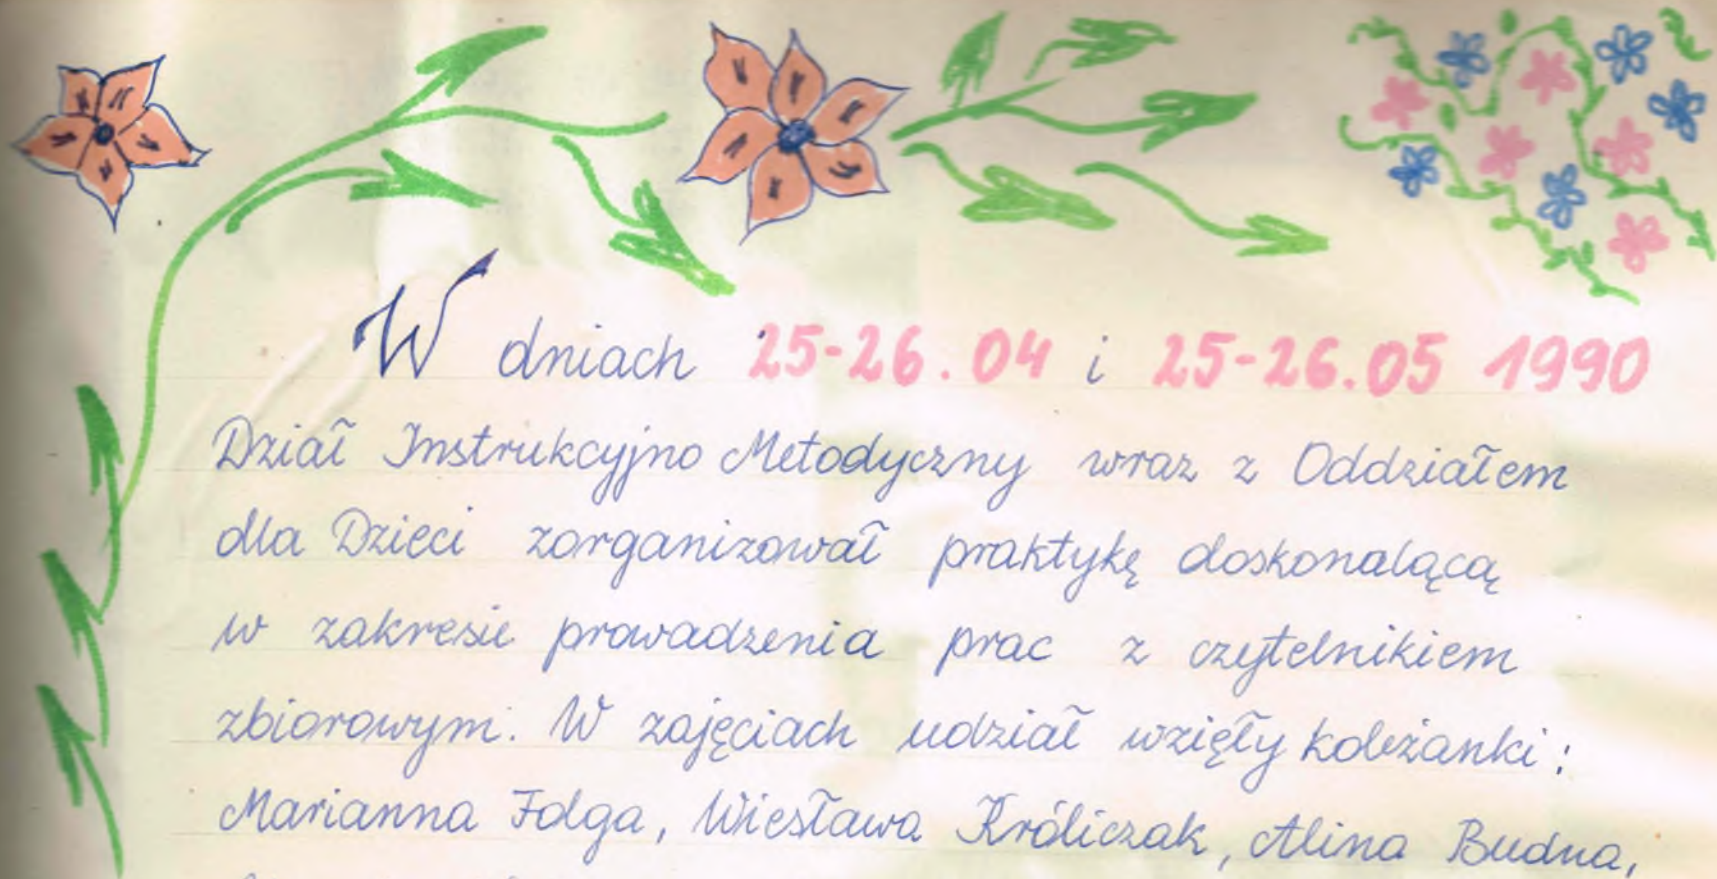 W dniach 25-26.04 i 25-26.05 1990
Dział Instrukcyjno Metodyczny wraz z Oddziałem
dla Dzieci zorganizował praktykę doskonalącą
w zakresie prowadzenia prac z czytelnikiem
zbiorowym. W zajęciach udział wzięły koleżanki:
Marianna Folga, Wiesława Króliczak, Alina Budna,